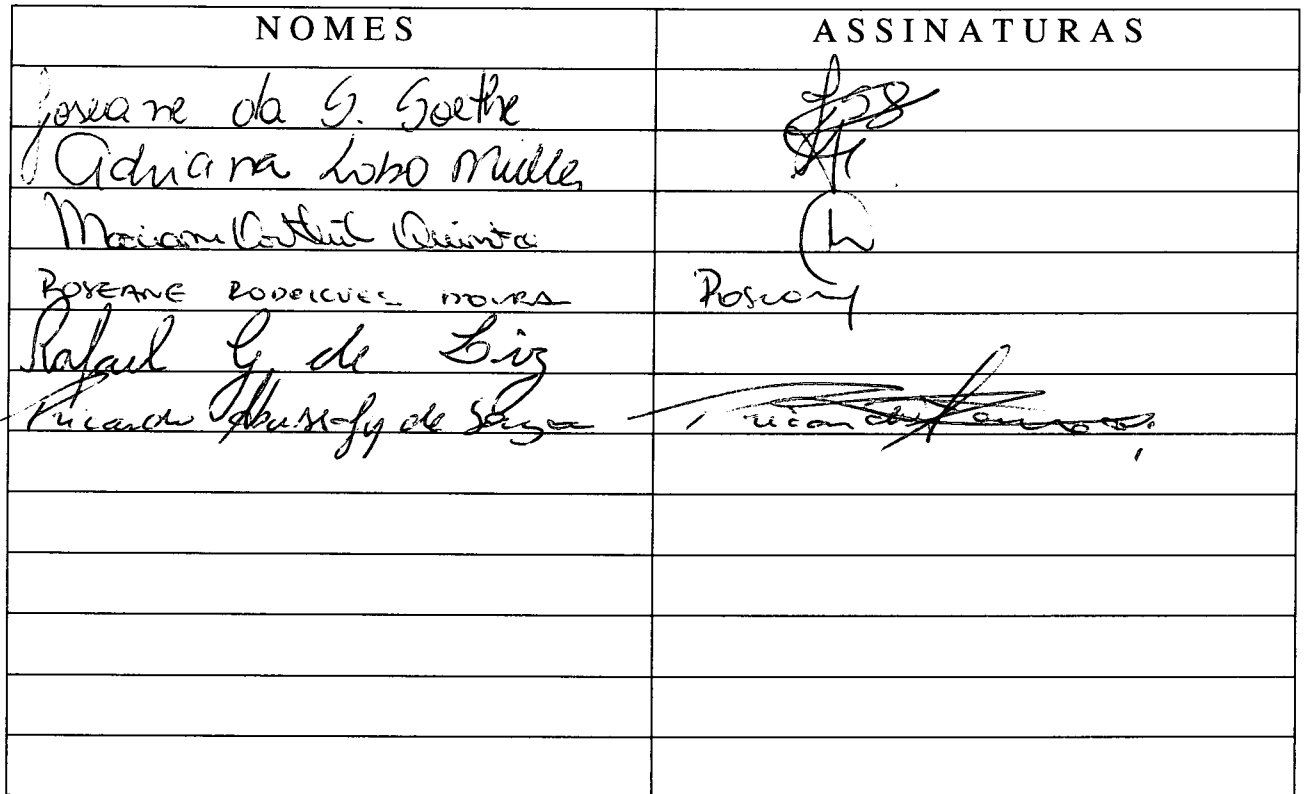 NOMES ASSINATURAS
Joseane da S. Goethe
Adriana Lobo Muller
Quinta
ROSEANE RODRIGUES MOURA Roseany
Rafael G. de Liz
Ricardo de Souza Ricardo